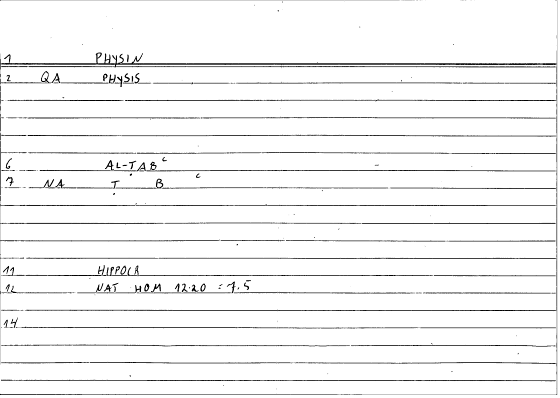 1 PHYSIN
2 QA PHYSIS
6 AL-ṬABᶜ
7 NA Ṭ B ᶜ
11 HIPPOCR
12 NAT HOM 12.20 = 7.5
14